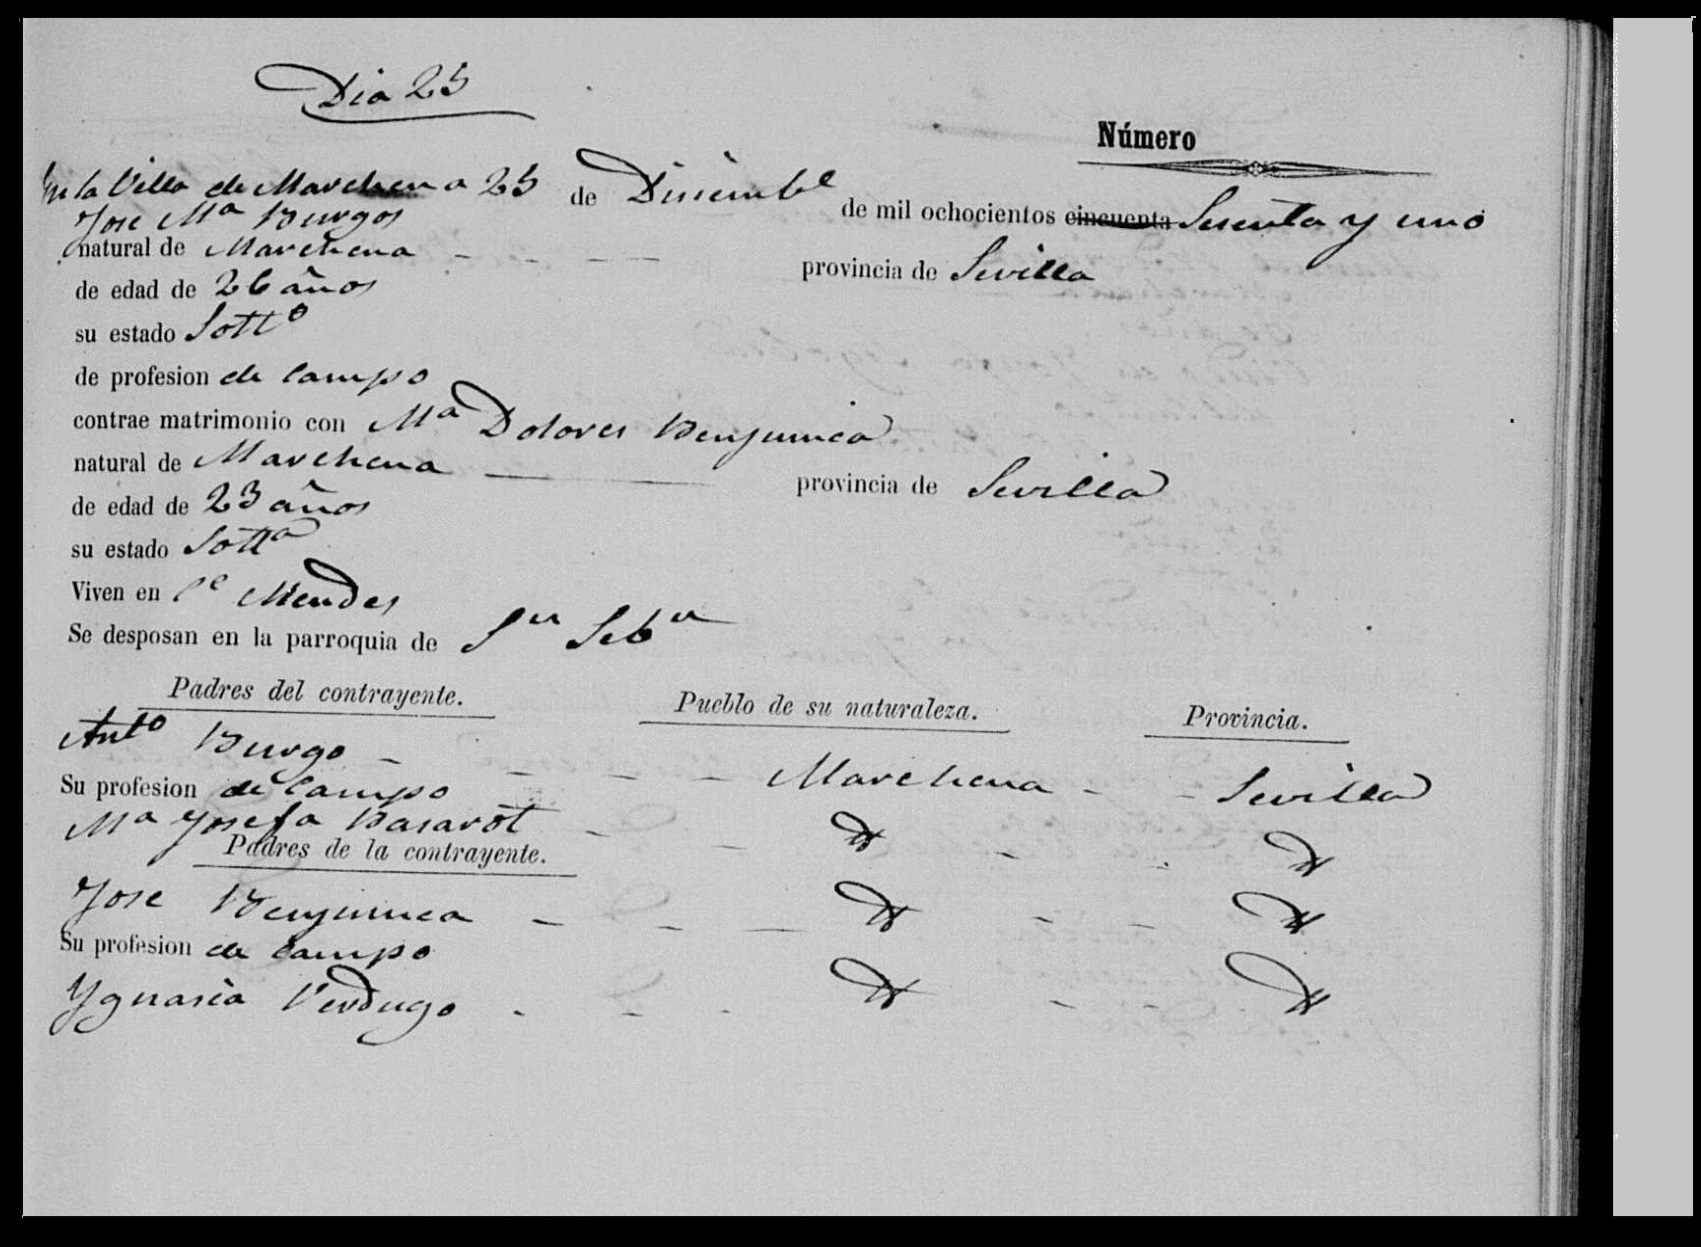 Dia 25
Número
En la Villa de Marchena a 25 de Diciembe de mil ochocientos cincuenta Sesenta y uno
Jose Mª Burgos
natural de Marchena - - - - provincia de Sevilla
de edad de 26 años
su estado Soltº
de profesion de Campo
contrae matrimonio con Mª Dolores Benjumea
natural de Marchena provincia de Sevilla
de edad de 23 años
su estado Soltª
Viven en Ce Mendes
Se desposan en la parroquia de Sn Sebn
Padres del contrayente. Pueblo de su naturaleza. Provincia.
Antº Burgo - - - - Marchena - - Sevilla
Su profesion de Campo
Mª Josefa - - D - - D
Padres de la contrayente.
Jose Benjumea - - - D - - D
Su profesion de Campo
Ygnasia Verdugo - - - D - - D